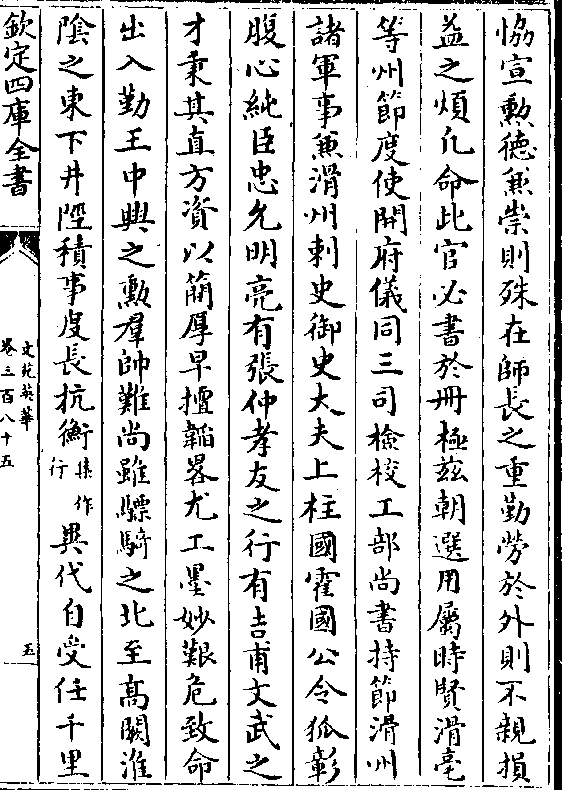 恊宣勲德兼崇則殊在師長之重勤勞於外則不親損
益之煩凢命此官必書於冊極兹朝選用屬時賢滑亳
等州節度使開府儀同三司檢校工部尚書持節滑州
諸軍事兼滑州刺史御史大夫上柱國霍國公令狐彰
腹心純臣忠允明亮有張仲孝友之行有吉甫文武之
才秉其直方資以簡厚早擅韜畧尤工墨妙艱危致命
出入勤王中興之勲羣帥難尚雖驃騎之北至高闕淮
陰之東下井陘積事度長抗衡集作行異代自受任千里
欽定四庫全書
文苑英華
卷三百八十五
五